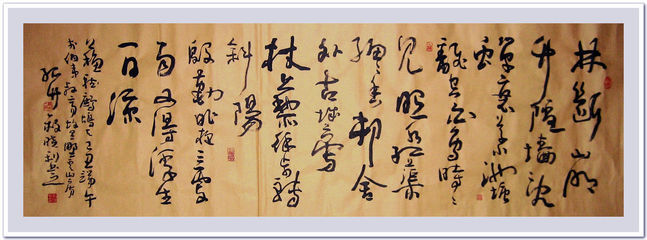 林断山明
竹隐墙乱
蝉衰草小池塘
翻空白鸟時々
见照水红蕖
细々香村舍
外古城旁
杖藜徐步转
斜陽
殷勤昨夜三更
雨又得浮生
一日凉
苏轼鹧鸪天丁丑端午